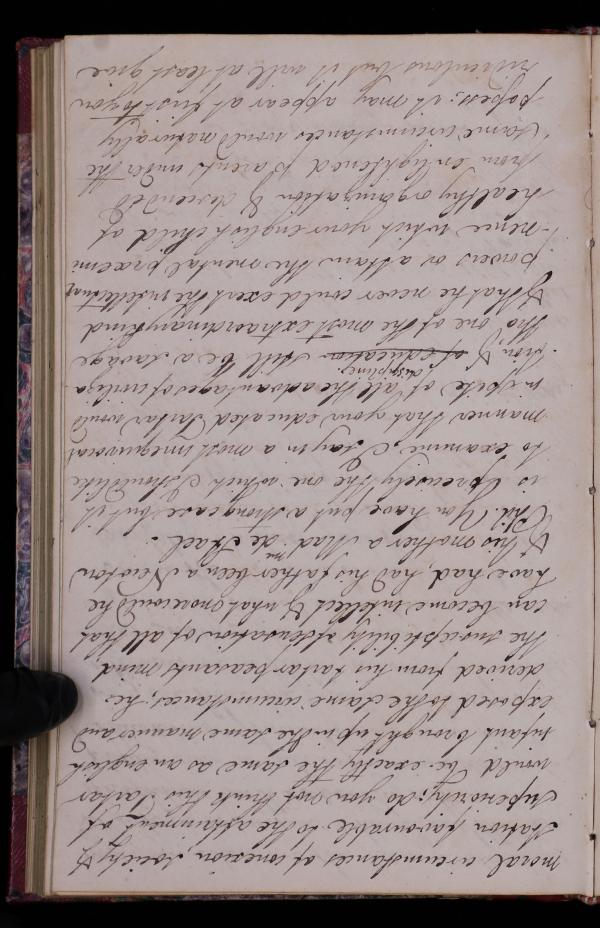 moral circumstances of connexion, society &
station favourable to the attainment of
superiority; do you not think this Tartar
would be exactly the same as an english
infant brought up in the same manner and
exposed to the same circumstances; he
derived from his tartar peasants mind
the susceptibility of sensation of all that
can become intellect & what more could he
have had, had his father been a Newton
& his mother a Mad.me de Stael.
Phil. You have put a strong case but it
is precisely the one which I should like
to examine. I say in a most unequivocal
manner that your educated Tartar would
in spite of all the advantages of civiliza
discipline
tion & of education still be a savage
tho' one of the most extraordinary kind
& that he never could exert the intellectual
powers or attain the mental preemi
-nence which your english child of
healthy organization & descended
from enlightened parents under the
same circumstances would naturally
possess; it may appear at first to you
ridiculous but I will at least give